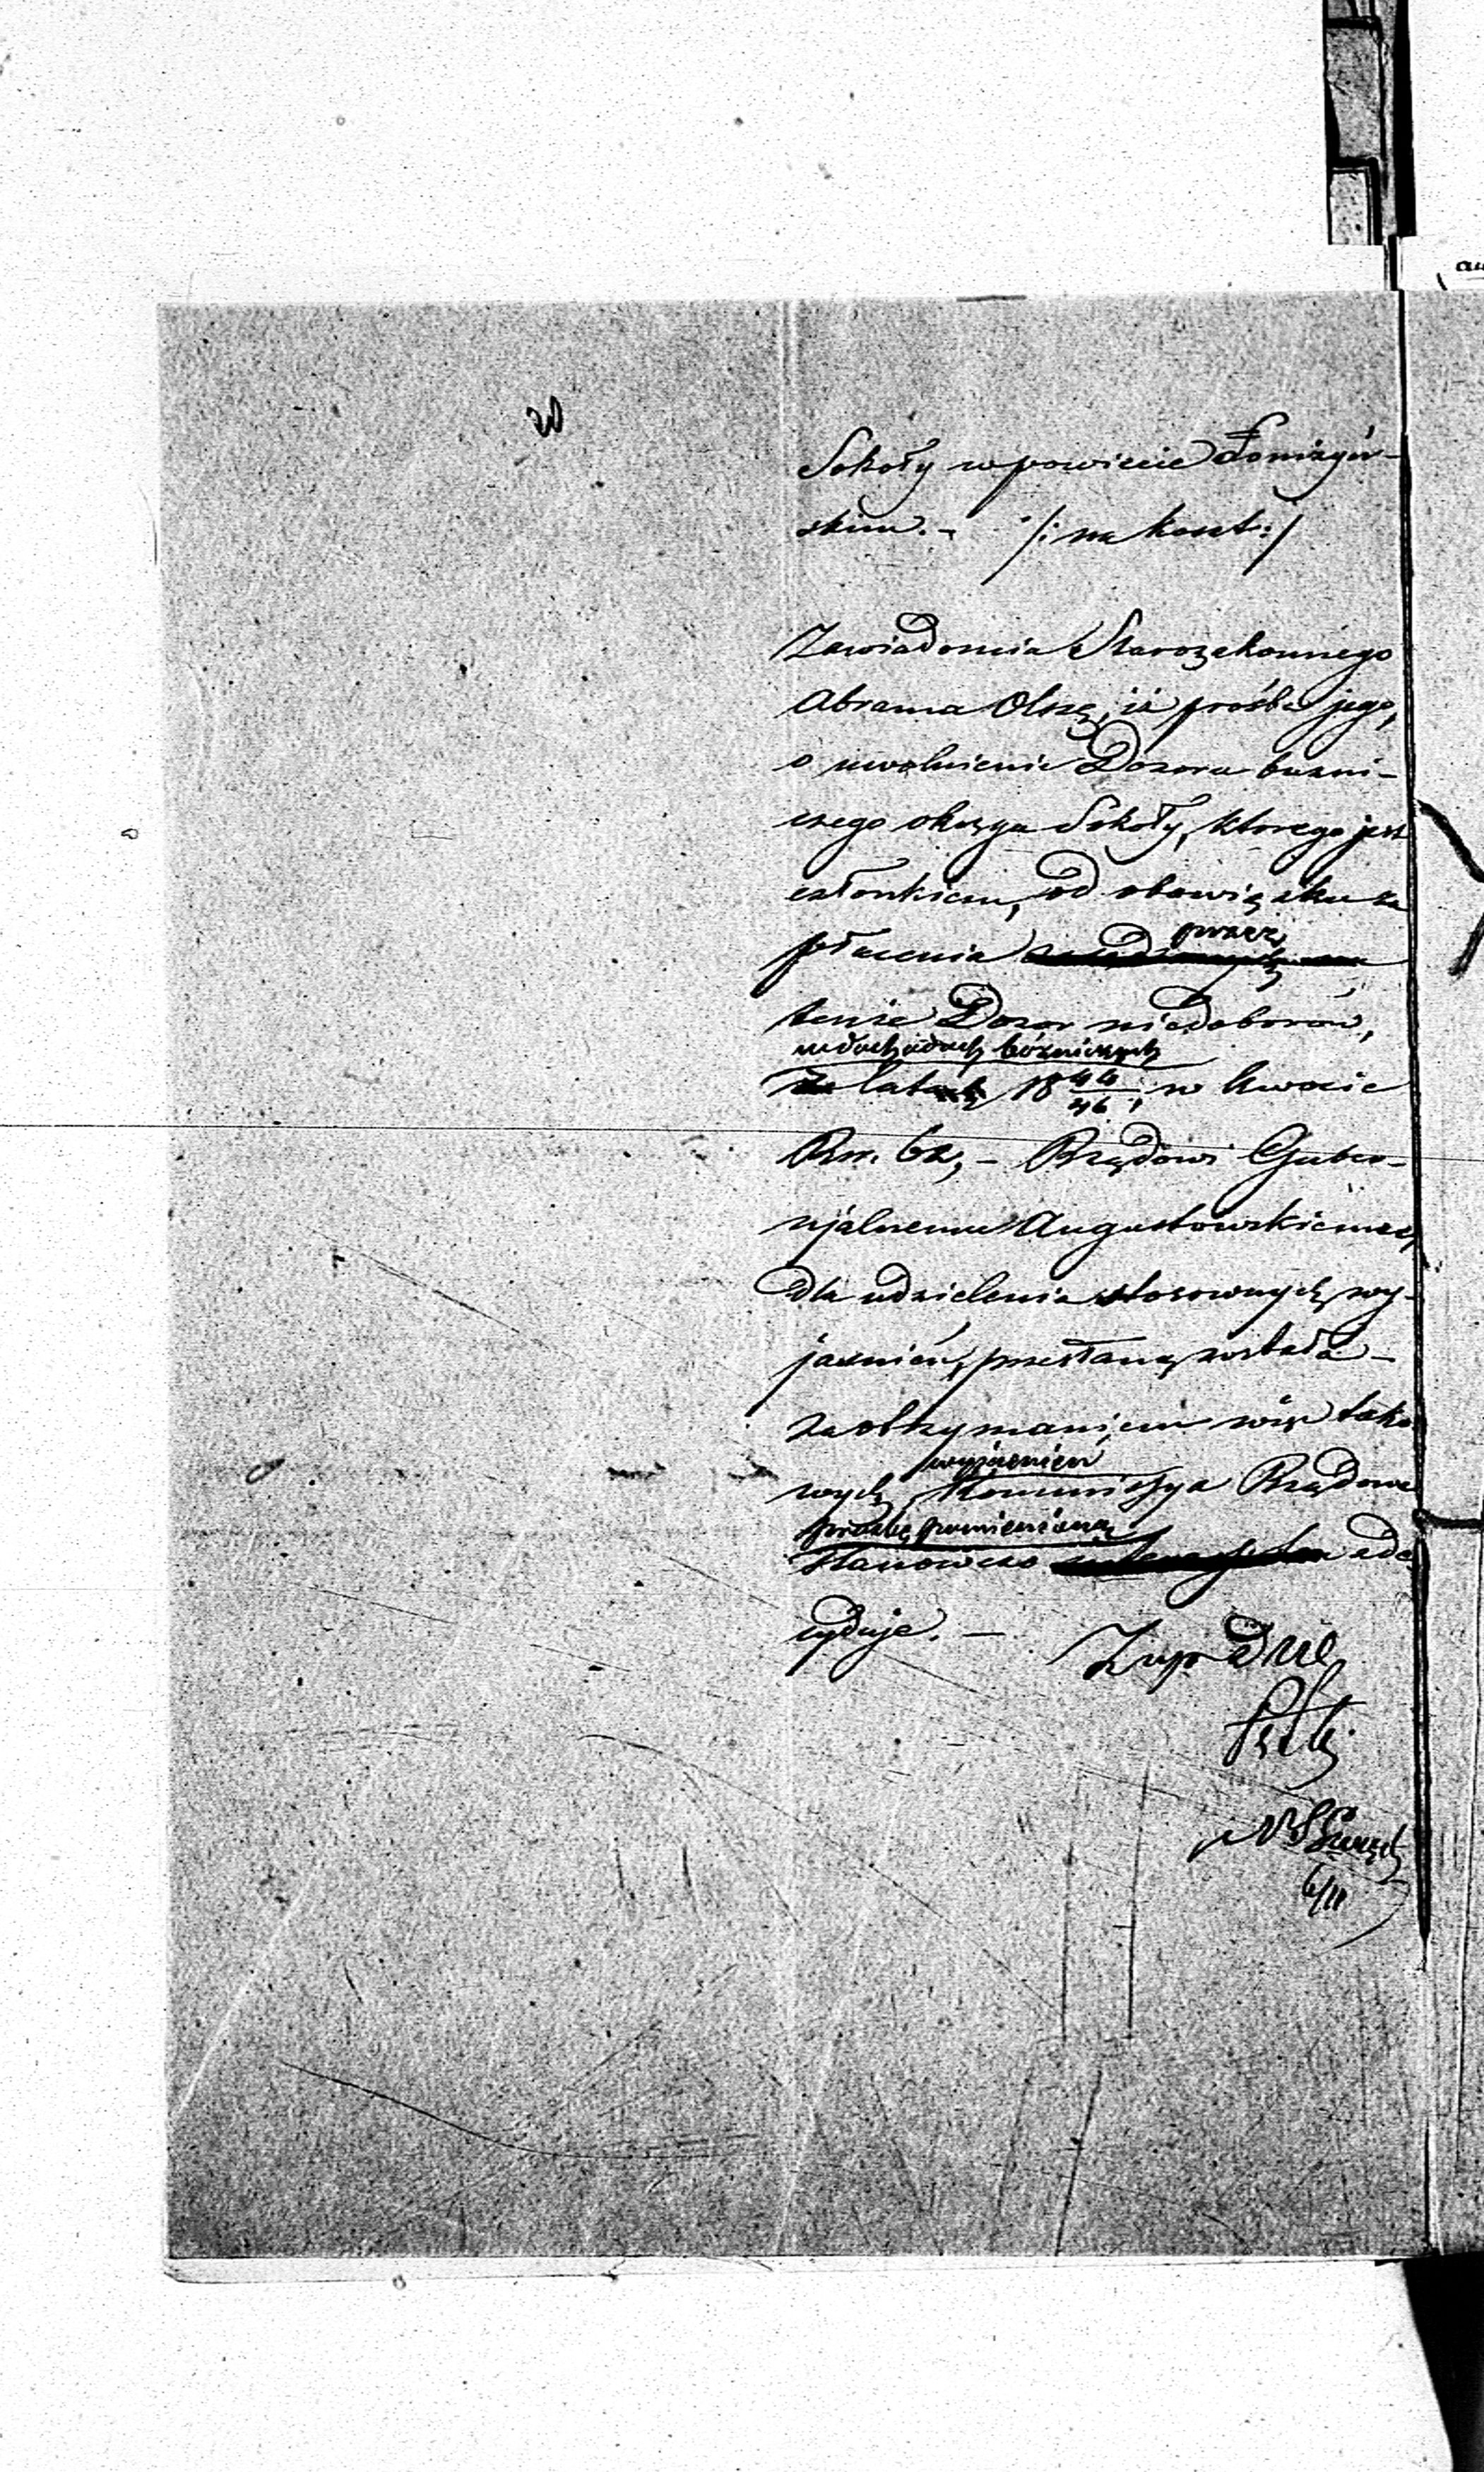 Sokoły w powiecie Łomżyń-
skim. - /: na koszt :/
Zawiadomia Starozakonnego
Abrama Olszę, iż prośba jego,
o uwolnienie Dozoru bużni-
czego okręgu Sokoły, którego jest
członkiem, od obowiązku za
przez
płacenia
tenże Dozór niedoborów,
w dochodach bóżniczych
za lata 18 44/46, w kwocie
Rsr. 62, - Rządowi Guber-
njalnemu Augustowskiemu,
dla udzielenia stosownych wy-
jaśnień, przesłaną została -
za otrzymaniem więc tako
wyjaśnień
wych, Kommissya Rządowa
prośbę pomienioną
stanowczo zde
cyduje. -
6/11